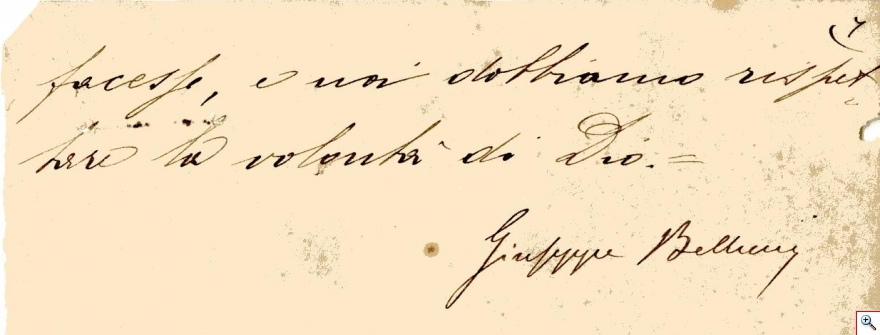 facesse, e noi dobbiamo rispet
tare la volontà di Dio. =
Giuseppe